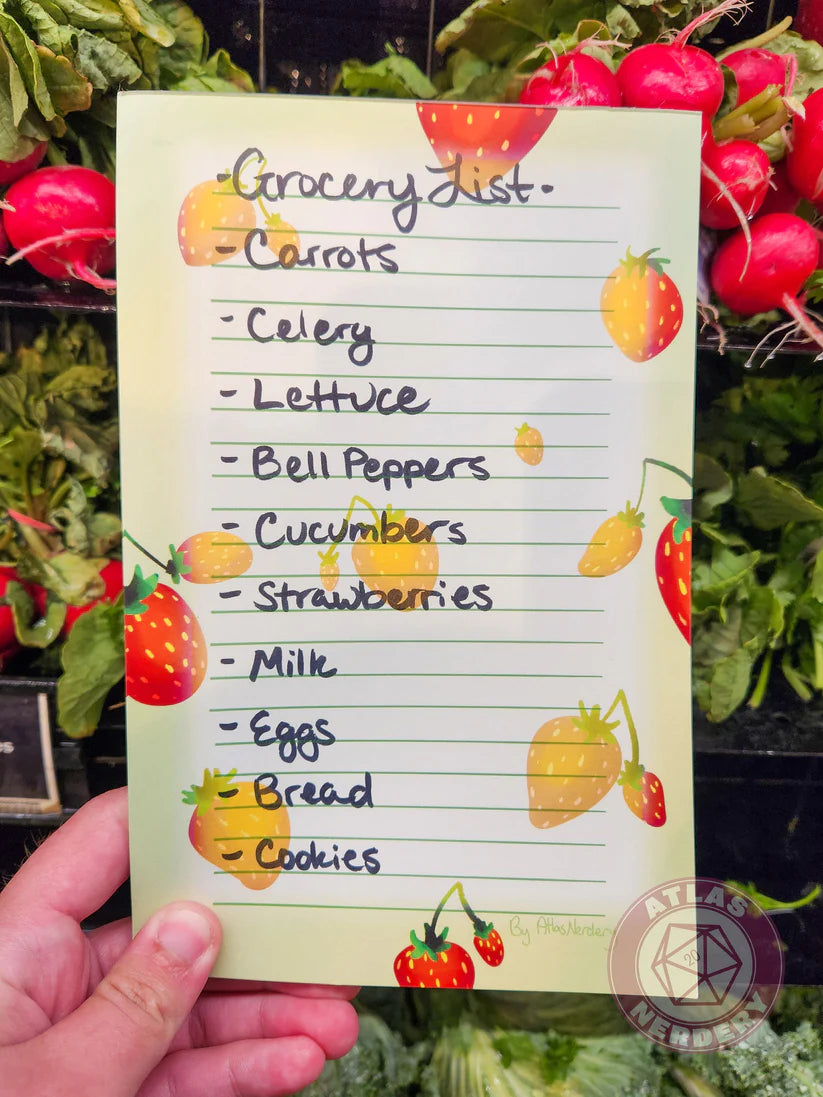 ·Grocery List·
- Carrots
- Celery
- Lettuce
- Bell Peppers
- Cucumbers
- Strawberries
- Milk
- Eggs
- Bread
- Cookies
By AtlasNerdery
ATLAS
20
NERDERY